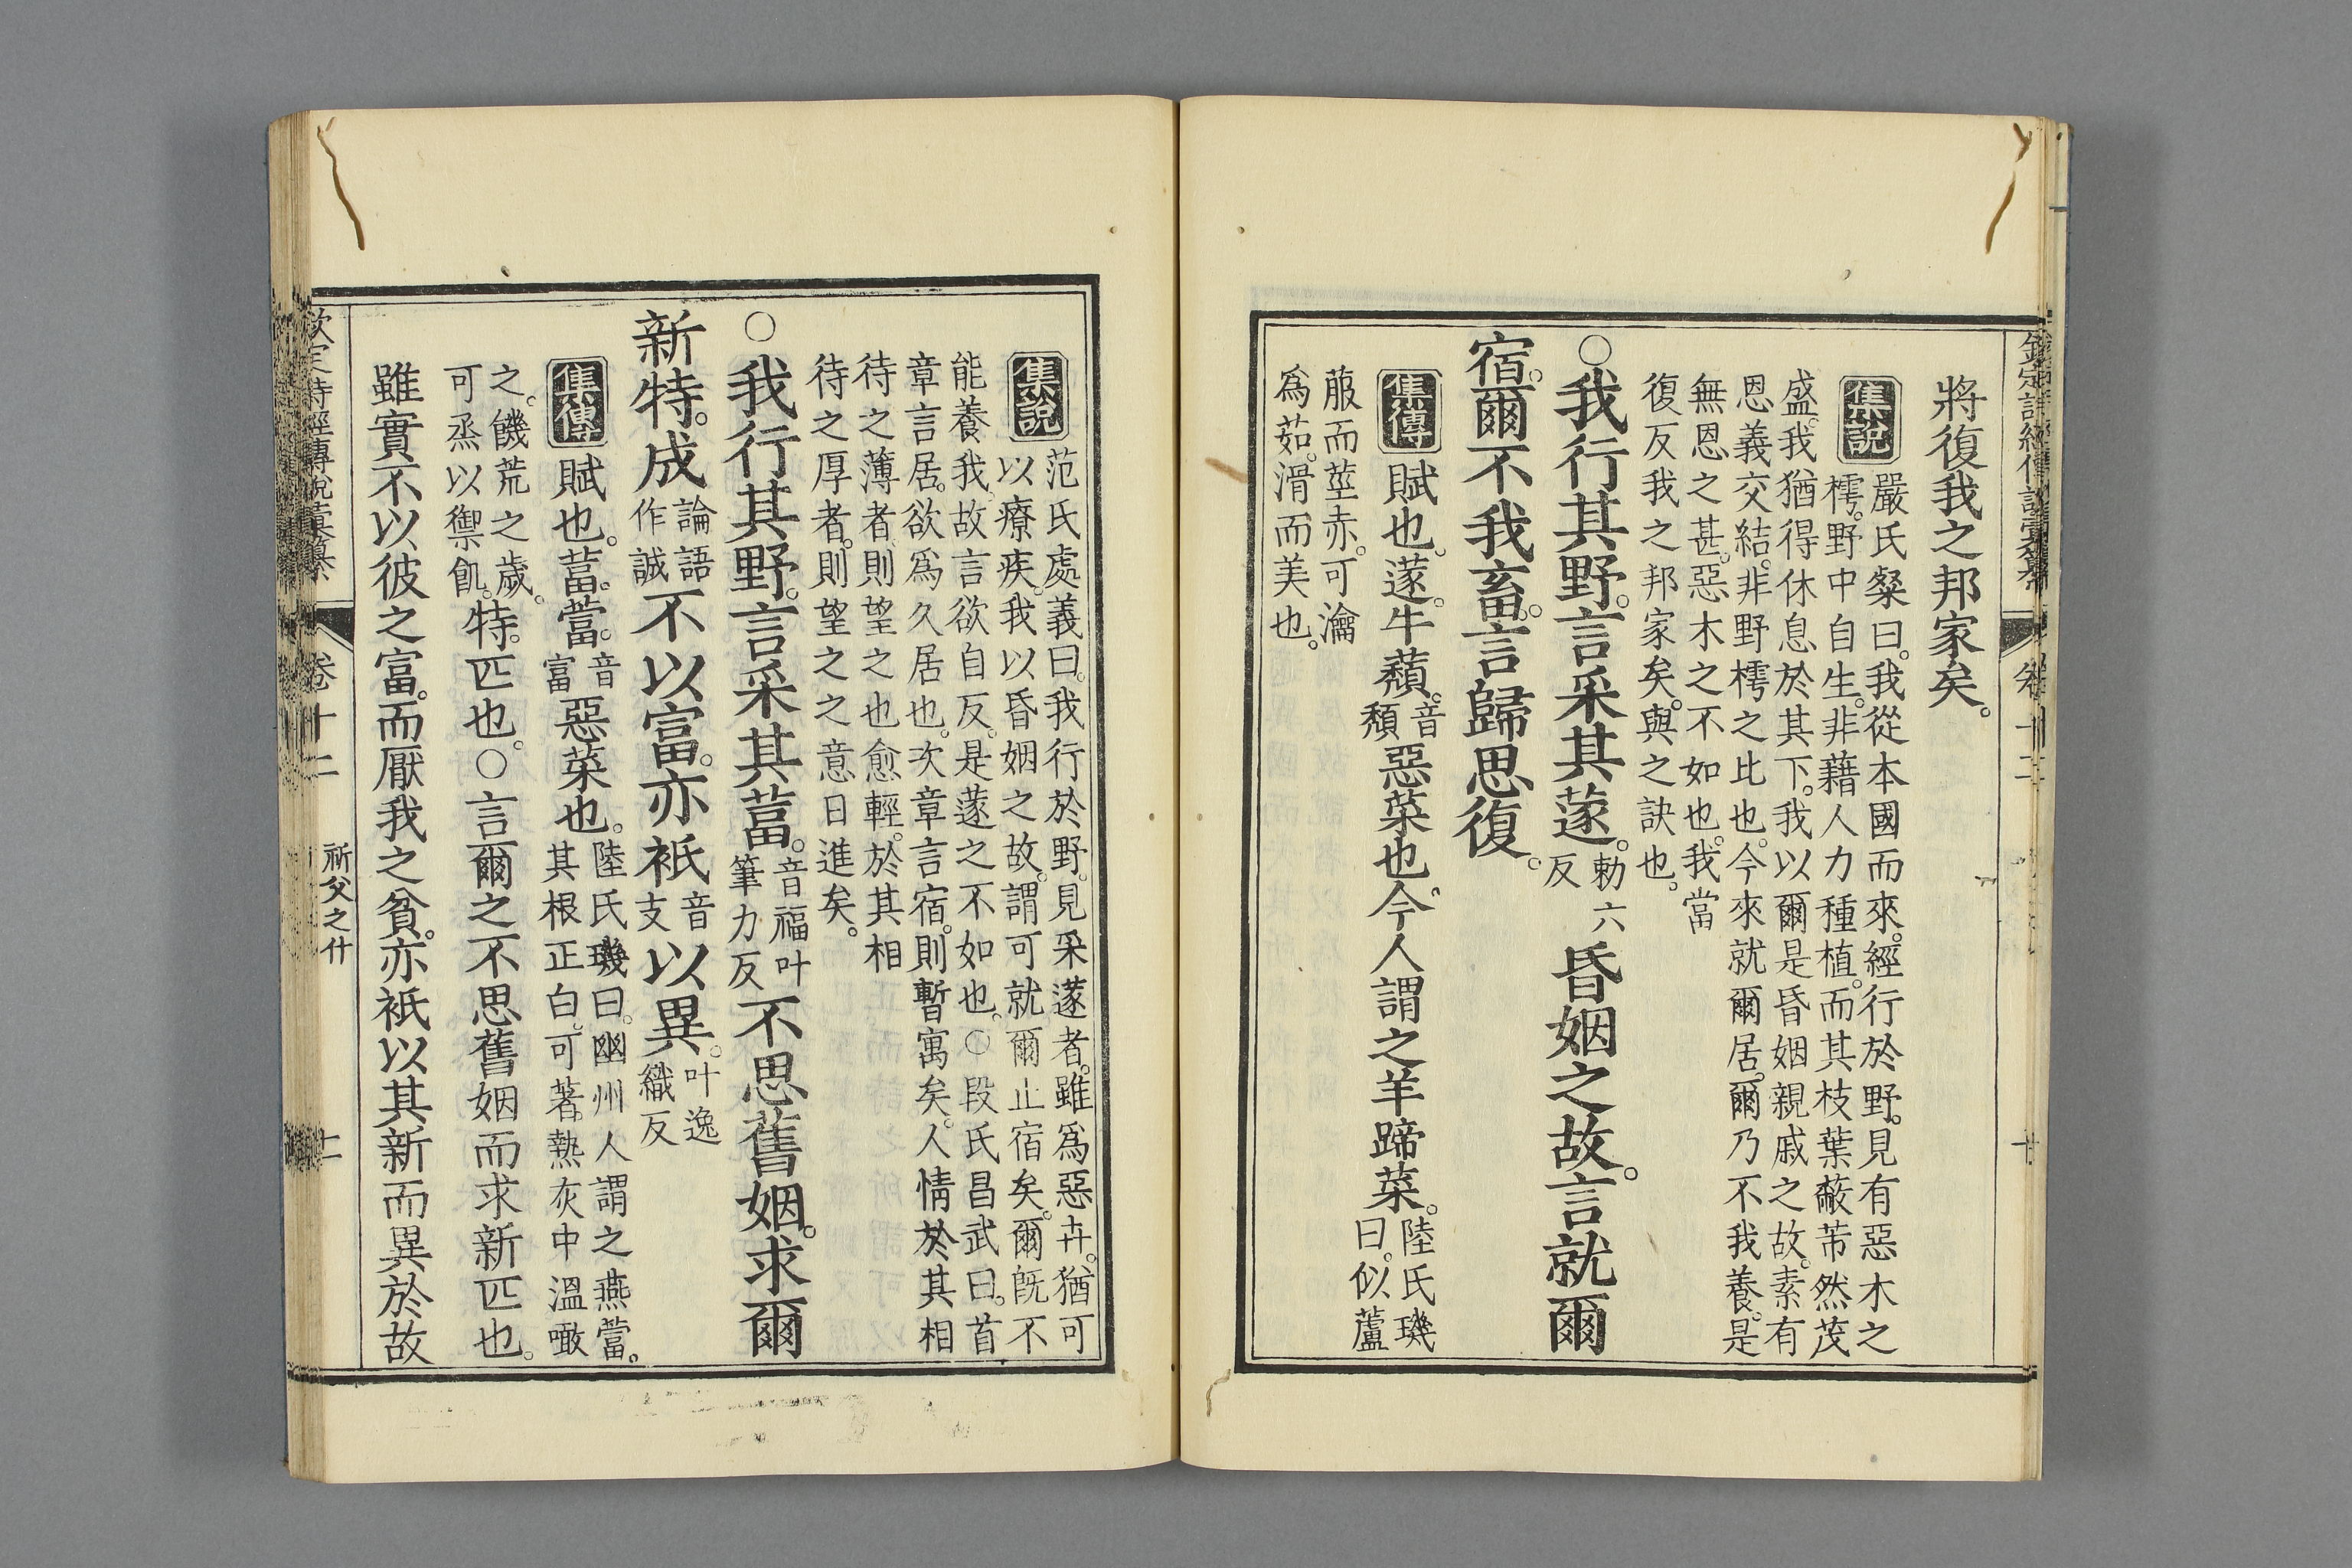 將復我之邦家矣。
集說
嚴氏粲曰。我從本國而來。經行於野。見有惡木之
樗。野中自生。非藉人力種植。而其枝葉蔽芾然茂
盛。我猶得休息於其下。我以爾是昏姻親戚之故。素有
恩義交結。非野樗之比也。今來就爾居。爾乃不我養。是
無恩之甚。惡木之不如也。我當
復反我之邦家矣。與之訣也。
○我行其野。言采其蓫。
勅六
反
昏姻之故。言就爾
宿。爾不我畜。言歸思復。
集傳
賦也。蓫。牛蘈。
音
頹
惡菜也。今人謂之羊蹄菜。
陸氏璣
曰。似蘆
菔而莖赤。可瀹
爲茹。滑而美也。
集說
范氏處義曰。我行於野。見采蓫者。雖爲惡卉。猶可
以療疾。我以昏姻之故。謂可就爾止宿矣。爾旣不
能養我。故言欲自反。是蓫之不如也。○段氏昌武曰。首
章言居。欲爲久居也。次章言宿。則暫寓矣。人情於其相
待之薄者。則望之也愈輕。於其相
待之厚者。則望之之意日進矣。
○我行其野。言采其葍。
音福叶
筆力反
不思舊姻。求爾
新特。成
論語
作誠
不以富。亦衹
音
支
以異。
叶逸
織反
集傳
賦也。葍。䔰。
音
富
惡菜也。
陸氏璣曰。幽州人謂之燕䔰。
其根正白。可著熱灰中溫噉
之。饑荒之歲。
可烝以禦飢。
特。匹也。○言爾之不思舊姻而求新匹也。
雖實不以彼之富。而厭我之貧。亦衹以其新而異於故
欽定詩經傳說彙纂
卷十二
祈父之什